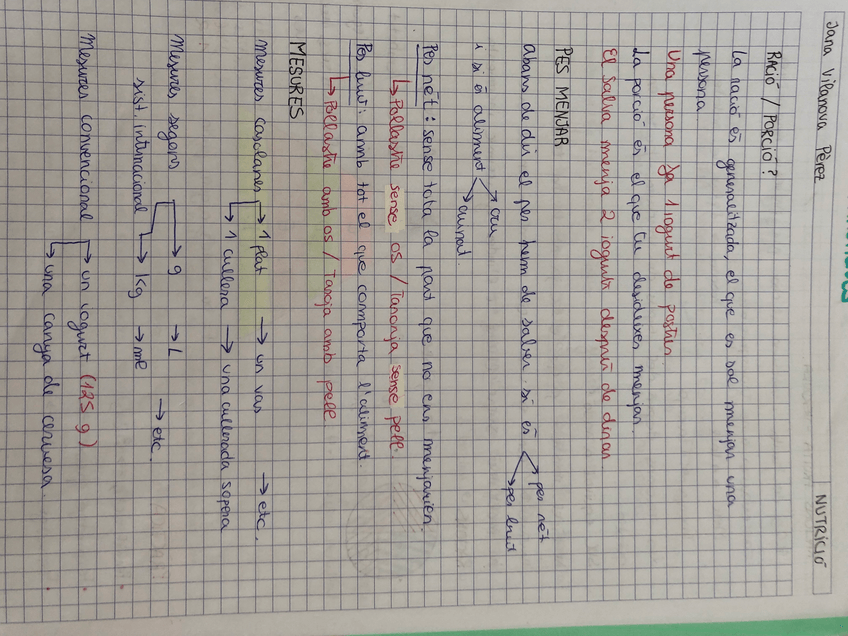 Jana Vilanova Pèrez
NUTRICIÓ
RACIÓ / PORCIÓ?
La ració és generalitzada, el que es sol menjar una
persona
Una persona 1 iogurt de postres
La porció és el que tu decideixes menjar.
El Salva menja 2 iogurts després de dinar
PES MENJAR
Abans de dir el pes hem de saber si és → pes nét
→ pes brut
i si é aliment → cru
→ cuinat.
Pes nét: sense tota la part que no ens menjarien.
↳ Pollastre sense os / Taronja sense pell.
Pes brut: amb tot el que comporta l'aliment.
↳ Pollastre amb os / Taronja amb pell
MESURES
Mesures casolanes → 1 plat → un vas → etc.
→ 1 cullera → una cullerada sopera
Mesures segons → g → L
sist. internacional → Kg → ml → etc.
Mesures convencional → un iogurt (125 g)
→ una canya de cervesa